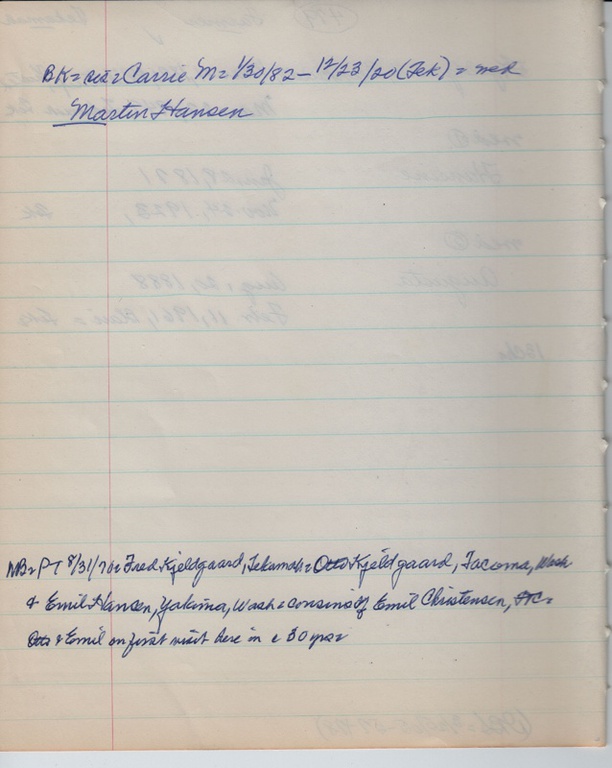 BK = sis = Carrie M = 1/30/82 - 12/23/20 (Tek) = med
Martin Hansen
NB = PT 8/31/70 = Fred Kjeldgaard, Tekamah = Otto Kjeldgaard, Tacoma, Wash
& Emil Hansen, Yakima, Wash = cousins of Emil Christensen,
Otto & Emil on first visit here in c 50 yrs